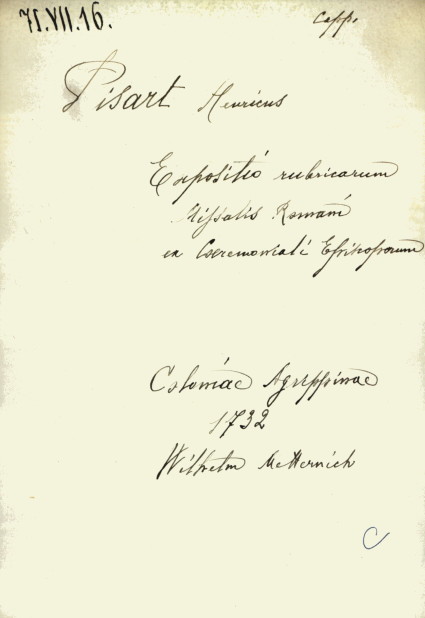 71.VII.16.
Capp.
Pisart Henricus
Expositió rubricarum
Missalis Romani
ex Cseremoniali Episcoporum
Coloniae Agrippinae
1732
Wilhelm Metternich
C